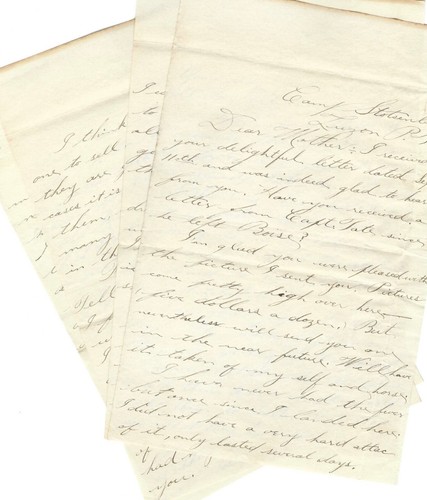 Camp Stotsen
Luzon P.
Dear Mother: I received
your delightful letter dated Se
11th and was indeed glad to hear
from you. Have you received a
letter from Capt. Tate since
he left Boise?
I'm glad you were pleased with
the picture I sent you. Pictures
come pretty high over here
five dollars a dozen. But
nevertheless will send you one
in the near future. Will have
it taken of my self and horse.
I have never had the fever
but once since I landed here.
I did not have a very hard attac
of it, only lasted several days.
I think
one to sell
they are
cases it is
them,
many
in th
Tell
of
had
you.